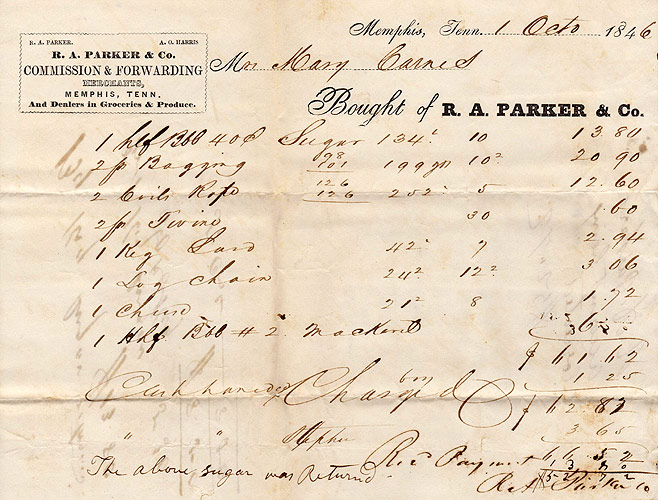 Memphis, Tenn. 1 Octo 1846
R. A. PARKER. A. O. HARRIS
R. A. PARKER & Co.
COMMISSION & FORWARDING
MERCHANTS,
MEMPHIS, TENN.
And Dealers in Groceries & Produce.
Mrs Mary Carnes
Bought of R. A. PARKER & Co.
1 hlf Bbl 408 Sugar 134 10 13 80
2 ps Bagging 98 101 199 yds 10½ 20.90
2 Coils Rope 126 126 252 5 12.60
2 ps Twine 30 1.60
1 Keg Lard 42 7 2.94
1 Log Chain 24½ 12½ 3 06
1 Cheese 21½ 8 1.72
1 Hlf Bbl # 2 Mackerel
$ 61 62
Cash handed boy Charged 1 25
$ 62 87
" " Stephen 3 65
Rec Payment 66 52
The above sugar was Returned 13 80
52 72
R A Parker Co